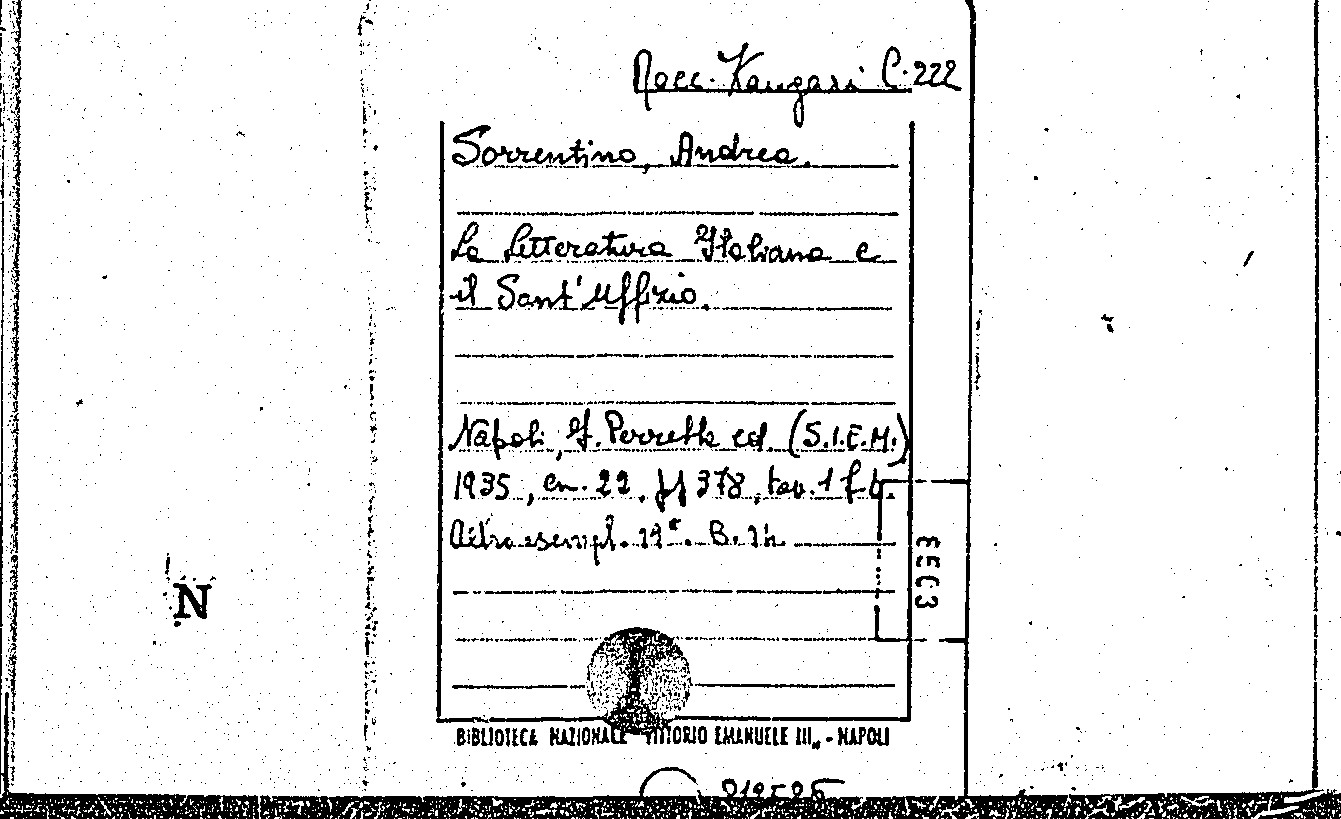 Racc. Vangasi C. 222
Sorrentino, Andrea.
La Letteratura Italiana e
il Sant'Uffizio.
Napoli, F. Perrella ed. (S.I.E.M.)
1935, cm. 22. pp 378, tav. 1 f.t.
Altro esempl.
N
BIBLIOTECA NAZIONALE VITTORIO EMANUELE III„ - NAPOLI